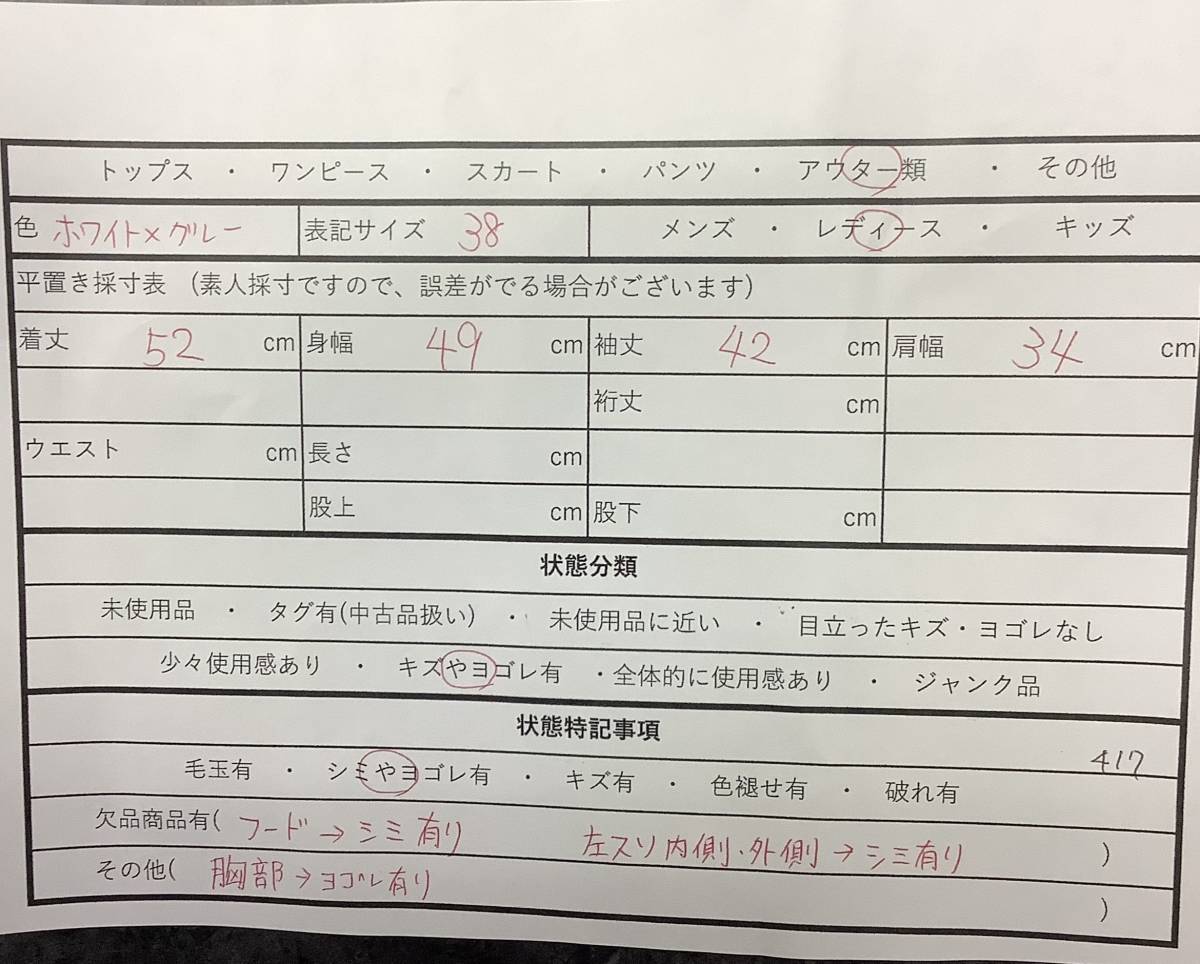 トップス ・ ワンピース ・ スカート ・ パンツ ・ アウター類 ・ その他
色 ホワイト×グレー 表記サイズ 38 メンズ ・ レディース ・ キッズ
平置き採寸表 (素人採寸ですので、誤差がでる場合がございます)
着丈 52 cm 身幅 49 cm 袖丈 42 cm 肩幅 34 cm
裄丈 cm
ウエスト cm 長さ cm
股上 cm 股下 cm
状態分類
未使用品 ・ タグ有(中古品扱い) ・ 未使用品に近い ・ 目立ったキズ・ヨゴレなし
少々使用感あり ・ キズやヨゴレ有 ・全体的に使用感あり ・ ジャンク品
状態特記事項
417
毛玉有 ・ シミやヨゴレ有 ・ キズ有 ・ 色褪せ有 ・ 破れ有
欠品商品有( フード→シミ有り 左スソ内側・外側→シミ有り )
その他( 胸部→ヨゴレ有り )